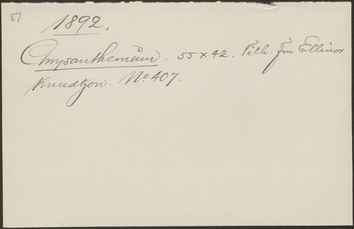 51
1892.
Chrysanthemum. 55 x 42. Tilh. frü Ellinor
Knudtzon. No 407.